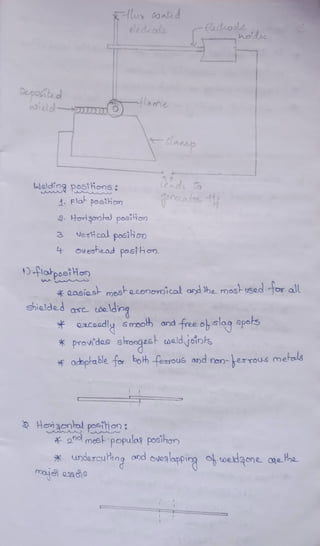 flux coated
electrode
Electrode
holder
Deposited
weld
flame
clamp
Leads to
generator
Welding positions:
1. Flat position
2. Horizontal position
3. Vertical position
4. overhead position.
1) flat position
* easiest most economical and the most used for all
shielded arc welding
* exceedly smooth and free of slag spots
* provides strongest weld joints
* adaptable for both ferrous and non-ferrous metals
2) Horizontal position:
* 2nd most popular position
* undercutting and overlapping of weldzone are the
major